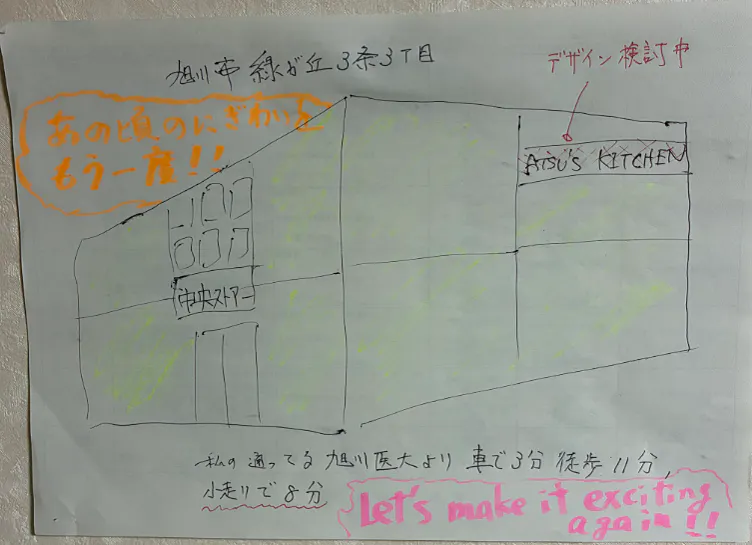 旭川市 緑が丘3条3丁目
デザイン検討中
あの頃のにぎわいを
もう一度!!
ATSU'S KITCHEN
中央ストアー
私の通ってる 旭川医大より 車で3分 徒歩11分,
小走りで8分
Let's make it exciting
again!!